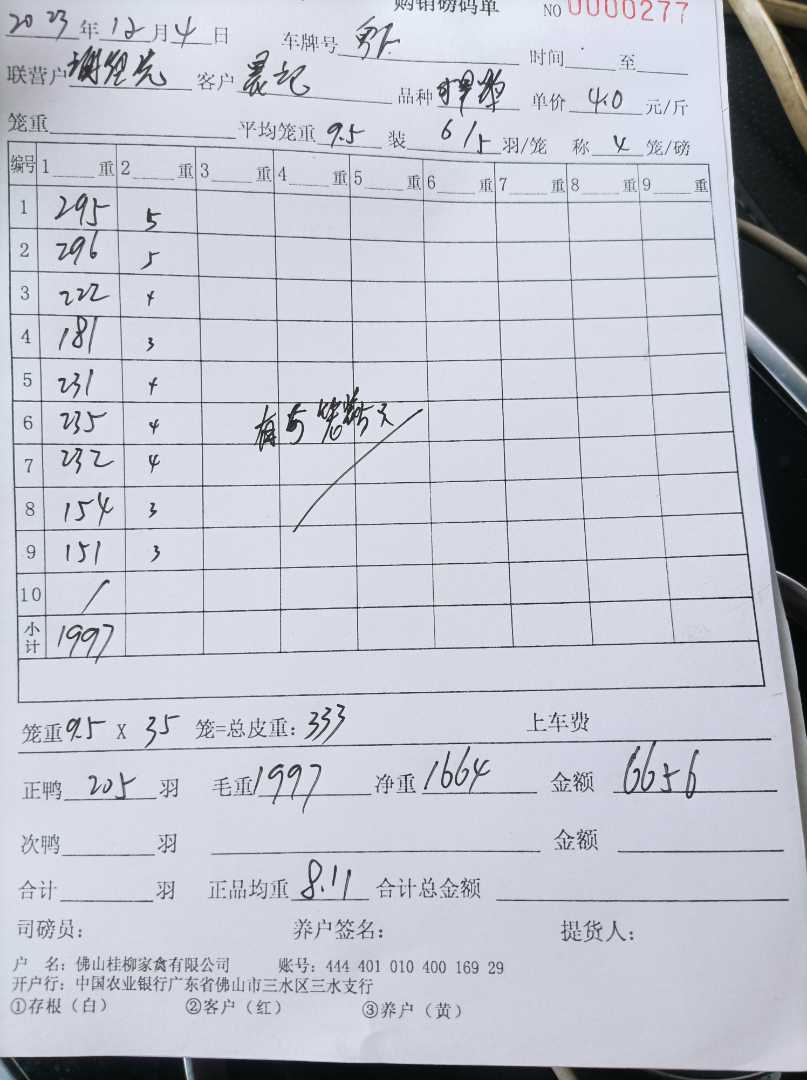 购销磅码单 NO 0000277
2023 年 12 月 4 日 车牌号 时间 至
联营户 客户 晨记 品种 单价 4.0 元/斤
笼重 平均笼重 9.5 装 6/5 羽/笼 称 4 笼/磅
编号 1 重 2 重 3 重 4 重 5 重 6 重 7 重 8 重 9 重
1 295 5
2 296 5
3 222 4
4 181 3
5 231 4
6 235 4
7 232 4
8 154 3
9 151 3
10 /
小计 1997
笼重 9.5 X 35 笼=总皮重: 333 上车费
正鸭 205 羽 毛重 1997 净重 1664 金额 6656
次鸭 羽 金额
合计 羽 正品均重 8.11 合计总金额
司磅员: 养户签名: 提货人:
户 名: 佛山桂柳家禽有限公司 账号: 444 401 010 400 169 29
开户行: 中国农业银行广东省佛山市三水区三水支行
①存根（白） ②客户（红） ③养户（黄）